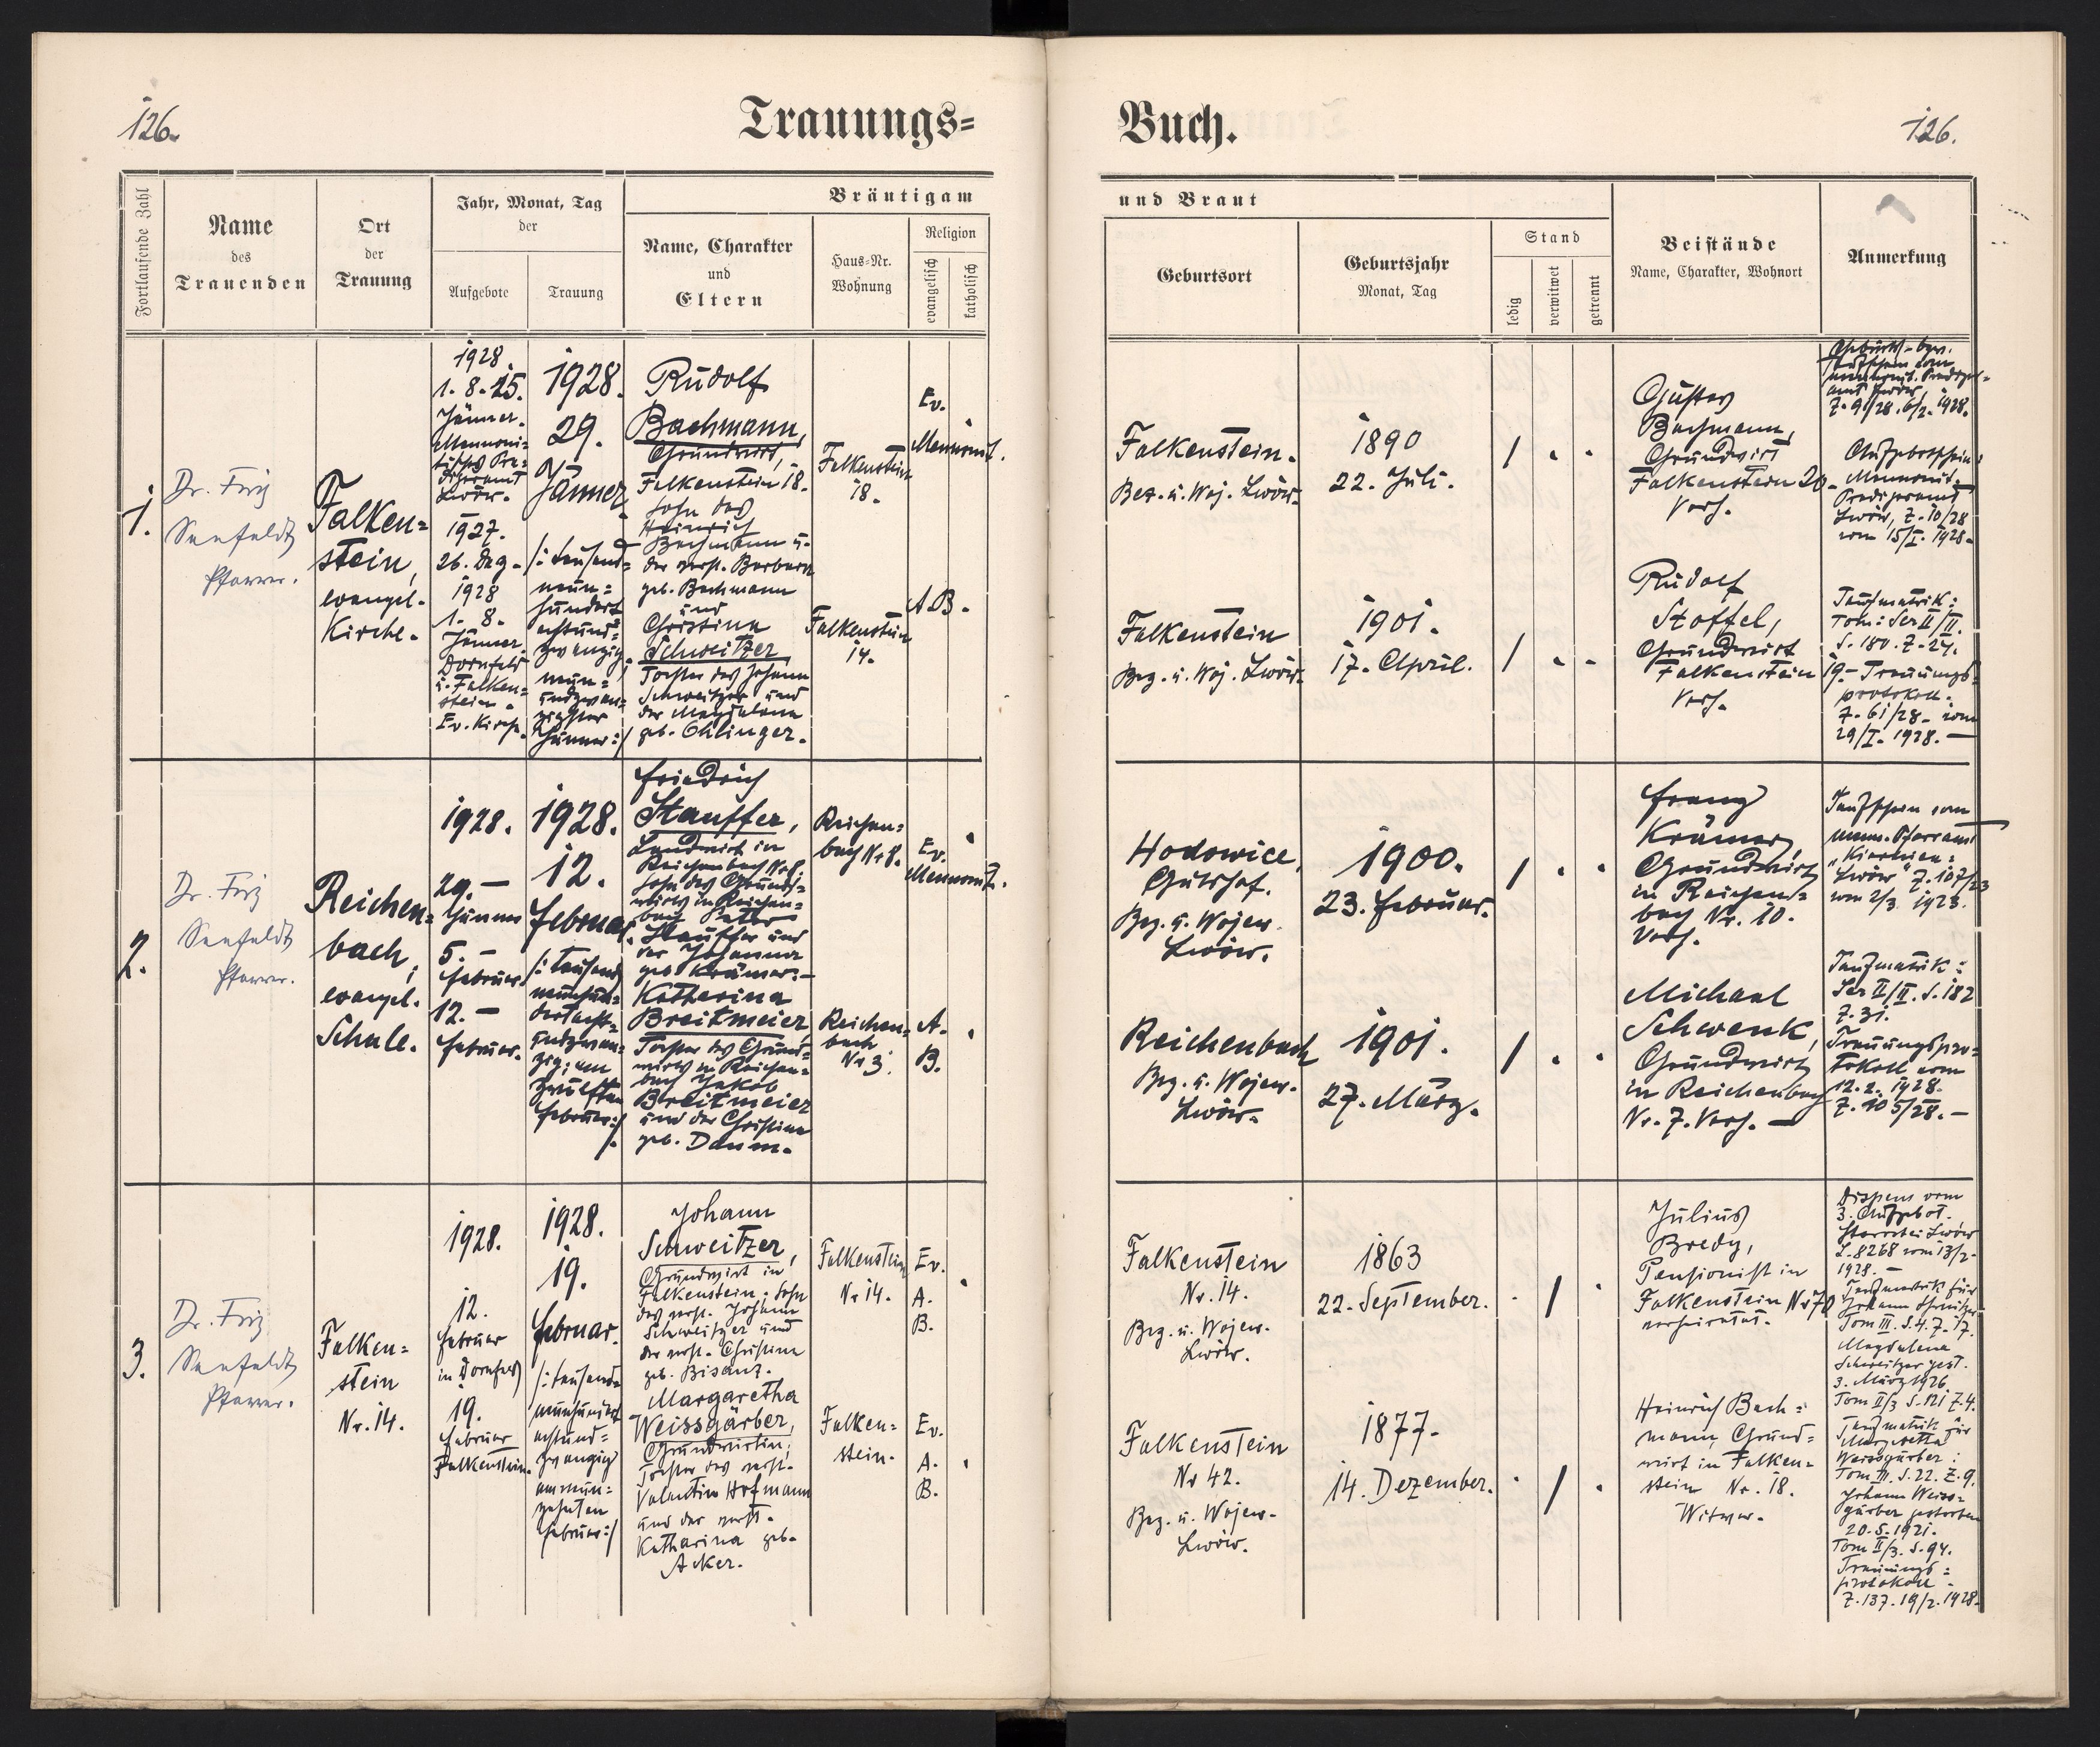 126.
Trauungs=
Buch.
126.
Fortlaufende Zahl
Name
des
Trauenden
Ort
der
Trauung
Jahr, Monat, Tag
der
Aufgebote
Trauung
Bräutigam
Name, Charakter
und
Eltern
Haus=Nr.
Wohnung
Religion
evangelisch
katholisch
und Braut
Geburtsort
Geburtsjahr
Monat, Tag
Stand
ledig
verwitwet
getrennt
Beistände
Name, Charakter, Wohnort
Anmerkung
1.
Dr. Friz
Seefeldt
Pfarrer.
Falken=
stein,
evangel.
Kirche.
1928
1. 8. 15.
Jänner.
Mennoni=
tisches Pre=
digeramt
Lwów.
1927.
26. Dez.
1928
1. 8.
Jänner.
Dornfeld
u. Falken=
stein.
Ev. Kirche.
1928.
29.
Jänner.
/: tausend=
neun=
hundert
achtund=
zwanzig,
neun=
undzwan=
zigster
Jänner :/
Rudolf
Bachmann,
Grundwirt,
Falkenstein 18.
Sohn des
Heinrich
Bachmann u.
der verst. Barbara
geb. Bachmann
und
Christina
Schweitzer
Tochter des Johann
Schweitzer und
der Magdalena
geb. Ohlinger.
Falkenstein
18.
Falkenstein
14.
Ev.
Mennonit.
A.B.
Falkenstein.
Bez. u. Woj. Lwów.
Falkenstein
Bez. u. Woj. Lwów.
1890
22. Juli.
1901.
17. April.
Gustav
Bachmann,
Grundwirt
Falkenstein 20.
Verh.
Rudolf
Stoffel,
Grundwirt
Falkenstein 19.
Verh.
Z. 91/28. 6/2. 1928.
Aufgebotschein:
Mennonit.
Predigeramt
Lwów, Z. 10/28
vom 15/I. 1928.
Taufmatrik:
Tom: Ser II/II.
S. 180. Z. 24.
Trauungs=
protokoll.
Z. 61/28. vom
29/I. 1928. —
2.
Dr. Friz
Seefeldt
Pfarrer.
Reichen=
bach,
evangel.
Schule.
1928.
29. —
Jänner
5. —
Februar.
12. —
Februar.
1928.
12.
Februar.
/: tausend
neunhun=
dertacht=
undzwan=
zig, am
zwölften
Februar :/
Friedrich
Stauffer,
Landwirt in
Reichenbach Nr 8.
Sohn des Grund=
wirts in Reichen=
bach Peter
Stauffer und
der Johanna
geb. Krämer. —
Katharina
Breitmeier
Tochter des Grund=
wirts in Reichen=
bach Jakob
Breitmeier
und der Christina
geb. Daum.
Reichen=
bach Nr 8.
Reichen=
bach
Nr 3.
Ev.
Mennonit.
A.
B.
Hodowice,
Gutshof.
Bez. u. Wojew.
Lwów.
Reichenbach
Bez. u. Wojew.
Lwów.
1900.
23. Februar.
1901.
27. März.
Franz
Krämer,
Grundwirt
in Reichen=
bach Nr. 10.
Verh.
Michael
Schwenk,
Grundwirt
in Reichenbach
Nr. 7. Verh. —
Taufschein vom
menn. Pfarramt
Lwów" Z. 107/23
vom 2/3. 1923.
Taufmatrik:
Ser II/II. S. 182
Z. 31.
Trauungspro=
tokoll vom
12. 2. 1928.
Z. 105/28. —
3.
Dr. Friz
Seefeldt
Pfarrer.
Falken=
stein
Nr. 14.
1928.
12.
Februar
in Dornfeld
19.
Februar
Falkenstein.
1928.
19.
Februar.
/: tausend=
neunhundert
achtund=
zwanzig
am neun=
zehnten
Februar :/
Johann
Schweitzer,
Grundwirt in
Falkenstein, Sohn
des verst. Johann
Schweitzer und
der verst. Christina
geb. Bisanz.
Margaretha
Weissgärber,
Grundwirtin,
Tochter des verst.
Valentin Hofmann
und der verst.
Katharina geb.
Acker.
Falkenstein
Nr 14.
Falken=
stein.
Ev.
A.
B.
Ev.
A.
B.
Falkenstein
Nr. 14.
Bez. u. Wojew.
Lwów.
Falkenstein
Nr 42.
Bez. u. Wojew.
Lwów.
1863
22. September.
1877.
14. Dezember.
Julius
Bredy,
Pensionist in
Falkenstein Nr 70
verheiratet.
Heinrich Bach=
mann, Grund=
wirt in Falken=
stein Nr. 18.
Witwer.
Dispens vom
3. Aufgebot.
Starostei Lwów
L. 8268 vom 13/2.
1928. —
Taufmatrik für
Johann Schweitzer
Tom III. S. 4. Z. 17.
Magdalena
Schweitzer gest.
3. März 1926.
Tom II/3 S. 121 Z. 4.
Taufmatrik für
Margaretha
Weissgärber:
Tom III. S. 22. Z. 9.
Johann Weiss=
gärber gestorben
20. 5. 1921.
Tom II/3. S. 94.
Trauungs=
protokoll
Z. 137. 19/2. 1928.